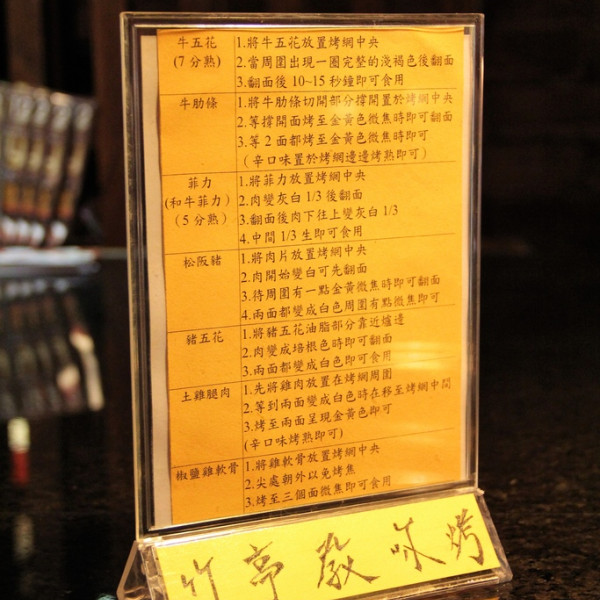 牛五花 1.將牛五花放置烤網中央
(7 分熟) 2.當周圍出現一圈完整的淺褐色後翻面
3.翻面後 10~15 秒鐘即可食用
牛肋條 1.將牛肋條切開部分撐開置於烤網中央
2.等撐開面烤至金黃色微焦時即可翻面
3.等 2 面都烤至金黃色微焦時即可
(辛口味置於烤網邊邊烤熟即可)
菲力 1.將菲力放置烤網中央
(和牛菲力) 2.肉變灰白 1/3 後翻面
(5 分熟) 3.翻面後肉下往上變灰白 1/3
4.中間 1/3 生即可食用
松阪豬 1.將肉片放置烤網中央
2.肉開始變白可先翻面
3.待周圍有一點金黃微焦時即可翻面
4.兩面都變成白色周圍有點微焦即可
豬五花 1.將豬五花油脂部分靠近爐邊
2.肉變成培根色時即可翻面
3.兩面都變成白色即可食用
土雞腿肉 1.先將雞肉放置在烤網周圍
2.等到兩面變成白色時在移至烤網中間
3.烤至兩面呈現金黃色即可
(辛口味烤熟即可)
椒鹽雞軟骨 1.將雞軟骨放置烤網中央
2.尖處朝外以免烤焦
3.烤至三個面微焦即可食用
竹亭教你烤